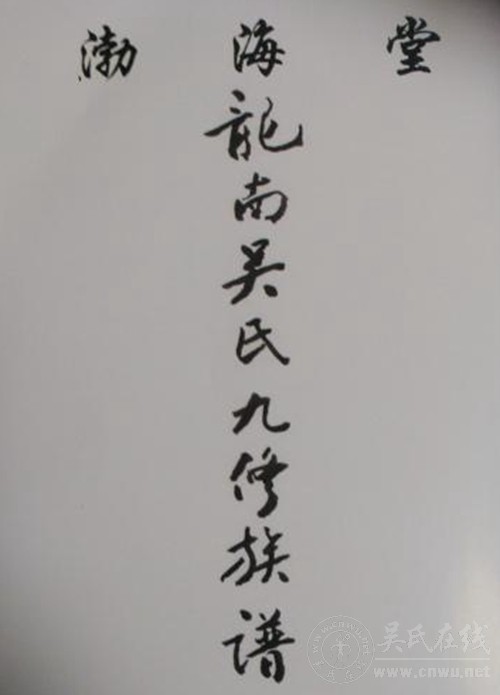 渤海堂
龍南吴氏九修族谱
吴氏在线
www.cnwu.net